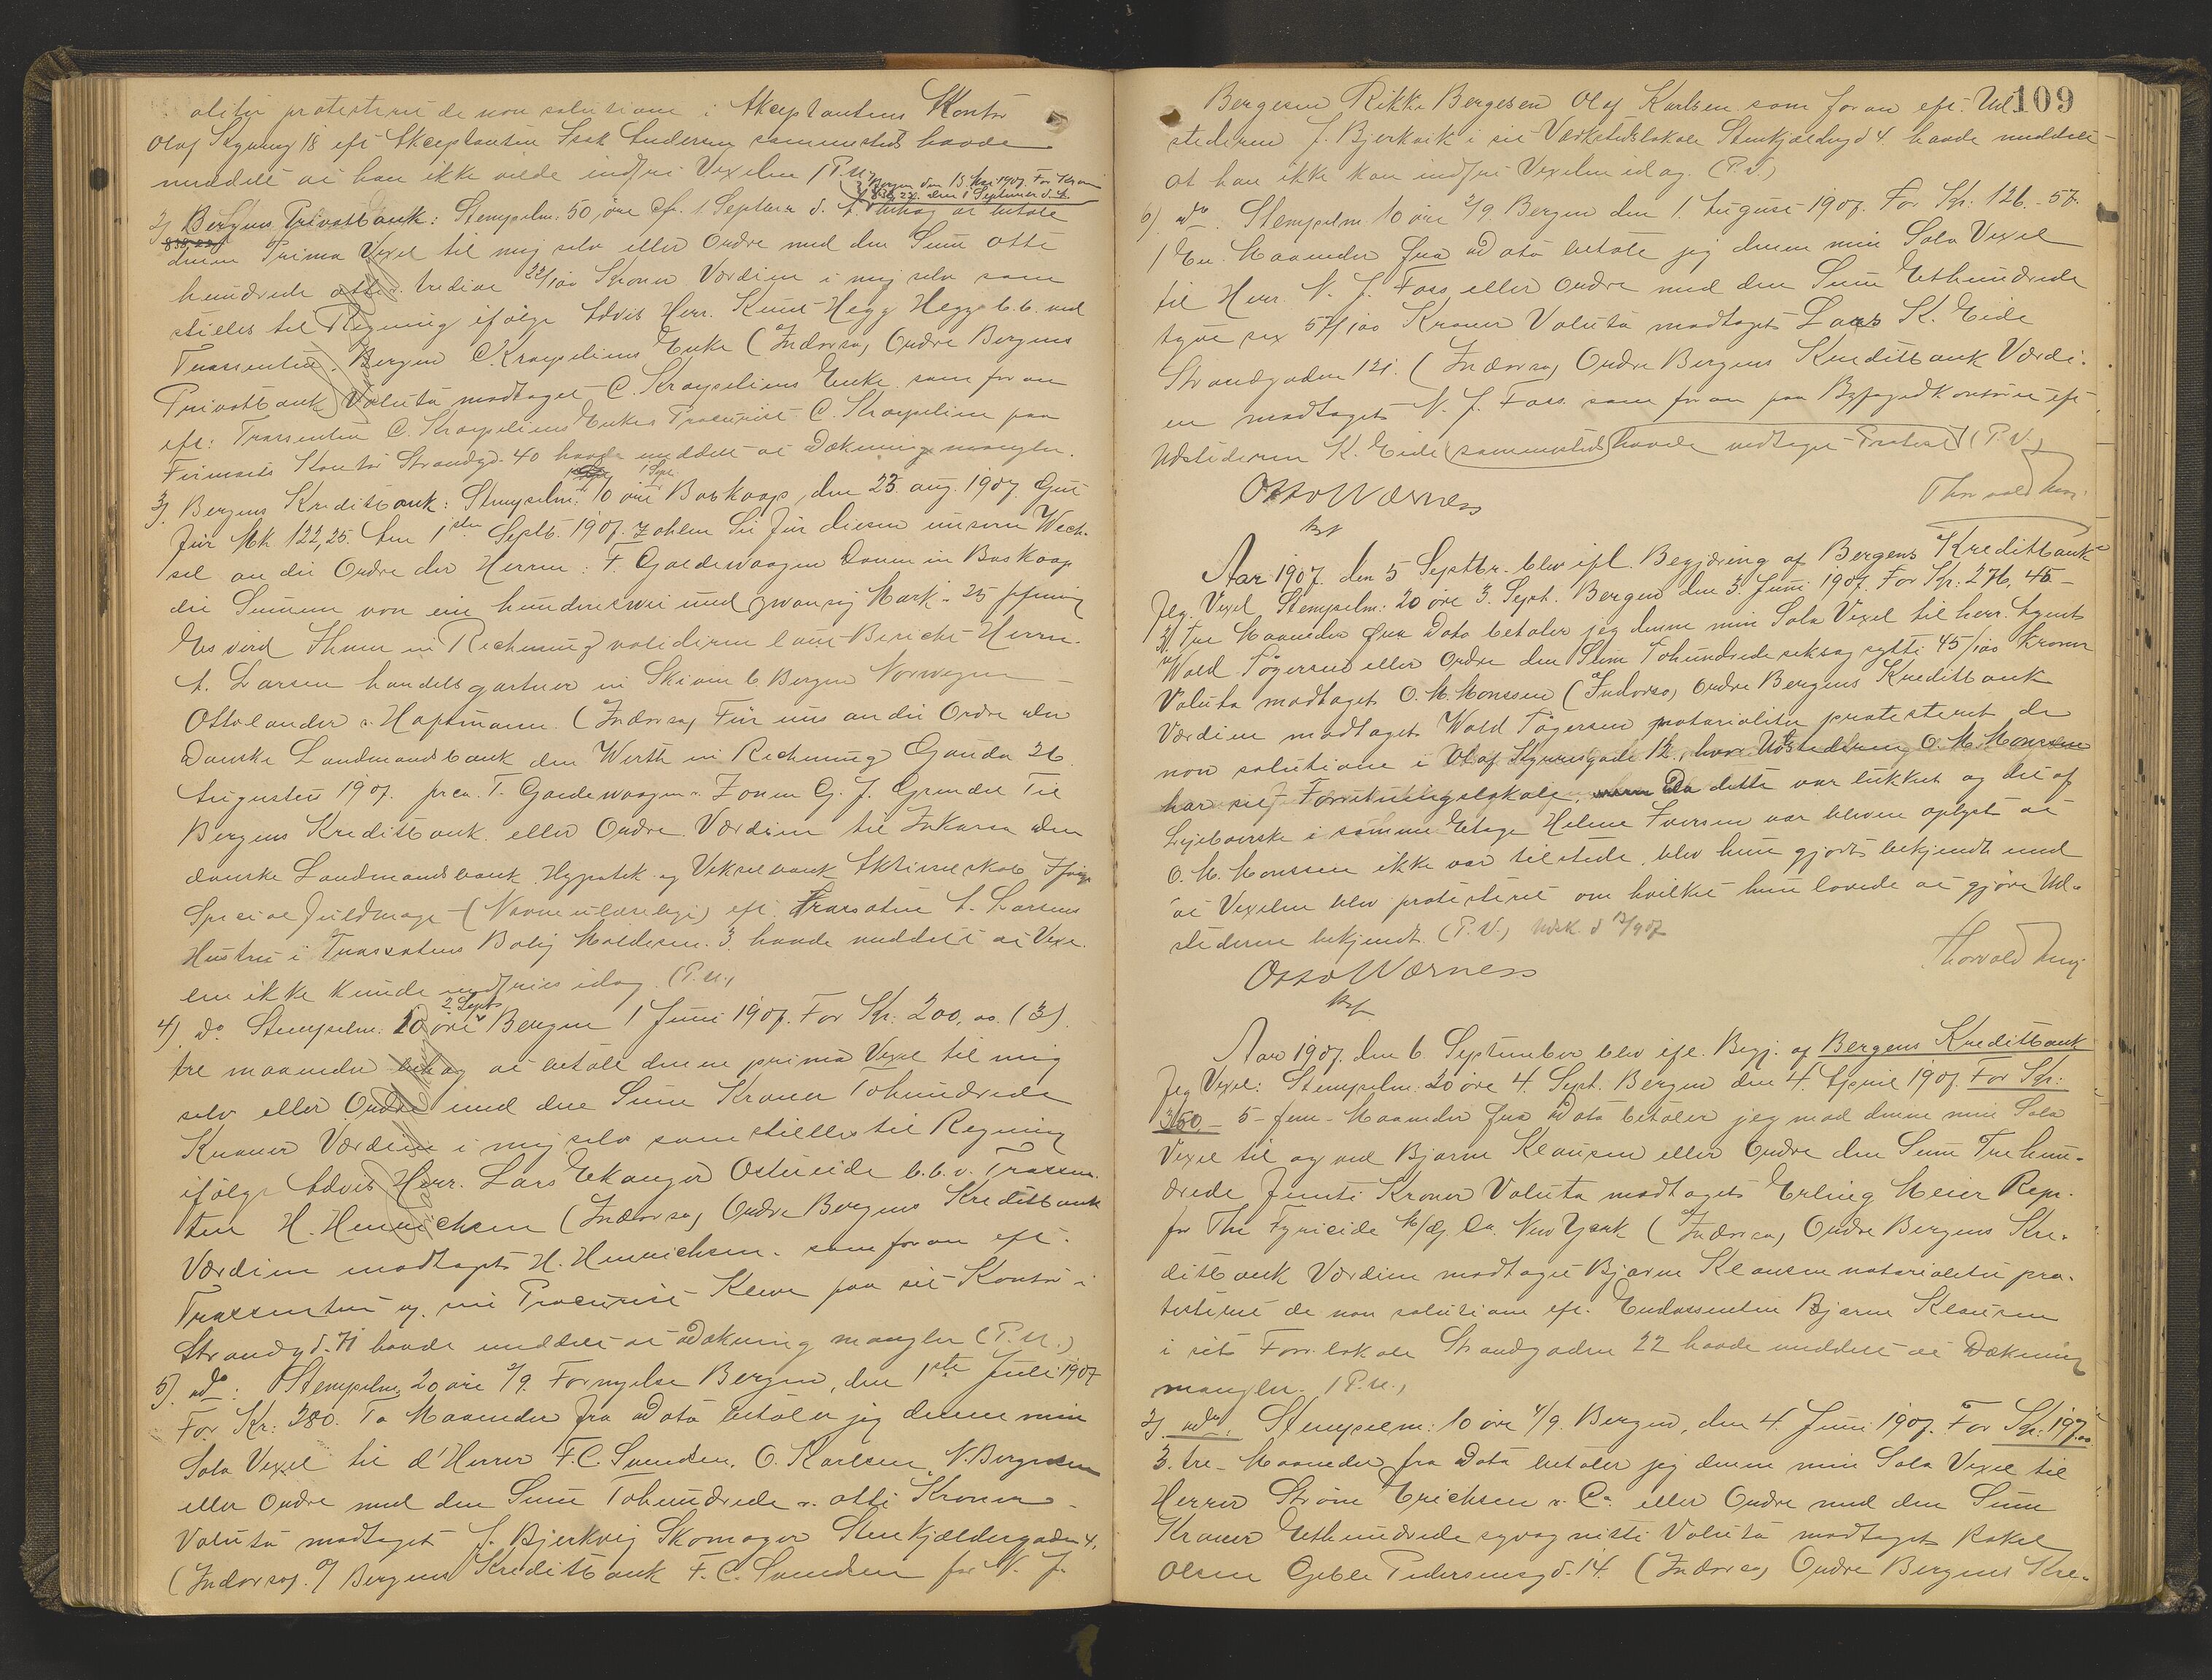 aliter protesteret de non solutione i Akceptantens Kontor
Olaf Kyrresg 18 eft Akceptanten Isak Andersen sammesteds havde
meddelt at han ikke vilde indfri Vexelen (P.M.)
Bergen den 15 Mai 1907. For Kroner
838,22. den 1 September d. A.
2) Bergens Privatbank: Stempelm: 50 øre Pr. 1 September d. A. behag at betale
denne Prima Vexel til mig selv eller Ordre med den Sum otte
hundrede otte & tredive 22/100 Kroner Værdien i mig selv som
stilles til Regning ifølge Advis Herr. Knut Hegg Hegg b.b. ved
Trassenten. Bergen C. Kraepeliens Enke (Indorso) Ordre Bergens
Privatbank Valuta modtaget C. Kraepeliens Enke som foran
eft: Trassenten C. Kraepeliens Enkes Procurist C. Kraepelien paa
Firmaets Kontor Strandgd. 40 havde meddelt at Dækning mangler.
1 Sept.
3) Bergens Kreditbank: Stempelm: 10 øre Boskoop, den 23. aug. 1907. Gut
für Mk 122,25. Am 1sten Septb. 1907. Zahlen Sie für diesen unseren Wech-
sel an die Ordre der Herren: F. Goedewaagen Zonen in Boskoop
die Summe von ein hundertzwei und zwanzig Mark. 25 pfennig
Herrn.
A. Larsen handelsgartner in Skien b. Bergen Norwegen
Ottolander & Hooftmann. (Indorso) Für uns an die Ordre der
Danske Landmandsbank den Werth in Rechnung Gouda 26
Augustus 1907. pr. T. Goedewaagen & Zonen G. J. Til
Bergens Kreditbank eller Ordre Værdien til Inkasso den
danske Landmandsbank Hypothek og Vekselbank Aktieselskab Ifølge
Special fuldmagt (Navne ulæselige) eft Trassaten A. Larsens
Hustru i Trassatens Bolig 3. havde meddelt at Vexe-
len ikke kunde indfries idag. (P.M.)
2 Sept.
4) do Stempelm. 20 øre Bergen 1 Juni 1907. For Kr. 200,00. (3)
tre maaneder behag at betale denne prima Vexel til mig
selv eller Ordre med den Sum Kroner Tohundrede
Kroner Værdien i mig selv som stilles til Regning
ifølge Advis Herr. Lars Ekanger Ostereide b.b.v. Trassen-
ten H. Hennichsen (Indorso) Ordre Bergens Kreditbank
Værdien modtaget H. Hennichsen. som foran eft.
Trassenten v. sin Procurist Kleve paa sit Kontor i
Strandgd. 71 havde meddelt at Dækning mangler (P.M.)
5) do: Stempelm. 20 øre 2/9. Fornyelse Bergen, den 1ste Juli 1907
For Kr: 280. To Maaneder fra Dato betaler jeg denne min
Sola Vexel til d'Herrer F.C. Svendsen. O. Karlsen, N. Bergesen
eller Ordre med den Sum Tohundrede & otti Kroner
Valuta modtaget J. Bjerkvig Skomager Stenkjældergaden 4.
(Indorso) O/ Bergens Kreditbank F.C. Svendsen for N. J.
109
Bergesen Rikke Bergesen Olaf Karlsen som foran eft. Ud-
stederen J. Bjerkvik i sit Værkstedslokale Stenkjældergd 4. havde meddelt
at han ikke kan indfri Vexelen idag. (P.V.)
6) do. Stempelm 10 øre 2/9. Bergen den 1. August 1907. For Kr: 126.-57.
1 En. Maaneder fra Dato betale jeg denne min Sola Vexel
til Herr. N. J. Foss eller Ordre med den Sum Ethundrede
tyve sex 57/100 Kroner Valuta modtaget Lars K. Eide
Strandgaden 121. (Indorso) Ordre Bergens Kreditbank Værdi-
en modtaget N. J. Foss. som foran paa Byfogedkontoret eft
Udstederen K. Eide sammesteds havde vedtaget Protest (P.V.)
Otto Wærness
bf
Aar 1907. den 5 Septbr. blev ifl. Begjæring af Bergens Kreditbank
flg. Vexel Stempelm: 20 øre 3. Sept. Bergen den 3. Juni 1907. For Kr: 276,45.-
3/ Tre Maaneder fra Dato betaler jeg denne min Sola Vexel til herr. Agent
Wald Tøgersen eller Ordre den Sum Tohundrede seksogsytti 45/100 Kroner
Valuta modtaget O. M. Monssen (Indorso) Ordre Bergens Kreditbank
Værdien modtaget Wald Tøgersen notarialiter protesteret de
non solutione i Olaf Kyrresgade 12., hvor Udstederen O. M. Monssen
har sit Forretningslokale, Da dette var lukket og det af
i samme Etage Helene Iversen var bleven oplyst at
O. M. Monssen ikke var tilstede, blev hun gjort bekjendt med
at Vexelen blev protesteret om hvilket hun lovede at gjøre Ud-
stederen bekjendt. (P.V.) Udsk. d 12/9 07
Otto Wærness
bf
Aar 1907. den 6. September blev ifl. Begj. af Bergens Kreditbank
flg Vexel: Stempelm. 20 øre 4. Sept. Bergen den 4. April 1907. For Kr:
350.- 5- fem- Maaneder fra Dato betaler jeg mod denne min Sola
Vexel til og ved Bjarne Klausen eller Ordre den Sum Tre hun-
drede femti Kroner Valuta modtaget Erling Meier Repr.
for The Fyricide M/fg. Co. New York (Indorso) Ordre Bergens Kre-
ditbank Værdien modtaget Bjarne Klausen notarialiter pro-
testeret de non solutione eft. Endossenten Bjarne Klausen
i sit Forr. lokale Strandgaden 22 havde meddelt at Dækning
mangler. (P.M.)
2) do. Stempelm: 10 øre 4/9. Bergen, den 4. Juni 1907. For Kr: 197.00
3. tre- Maaneder fra Dato betaler jeg denne min Sola Vexel til
Herrer Strøm Erichsen & Co. eller Ordre med den Sum
Kroner Ethundrede syvognitti Valuta modtaget Rakel
Olsen Geble Pedersensgd. 14. (Indorso) Ordre Bergens Kre-